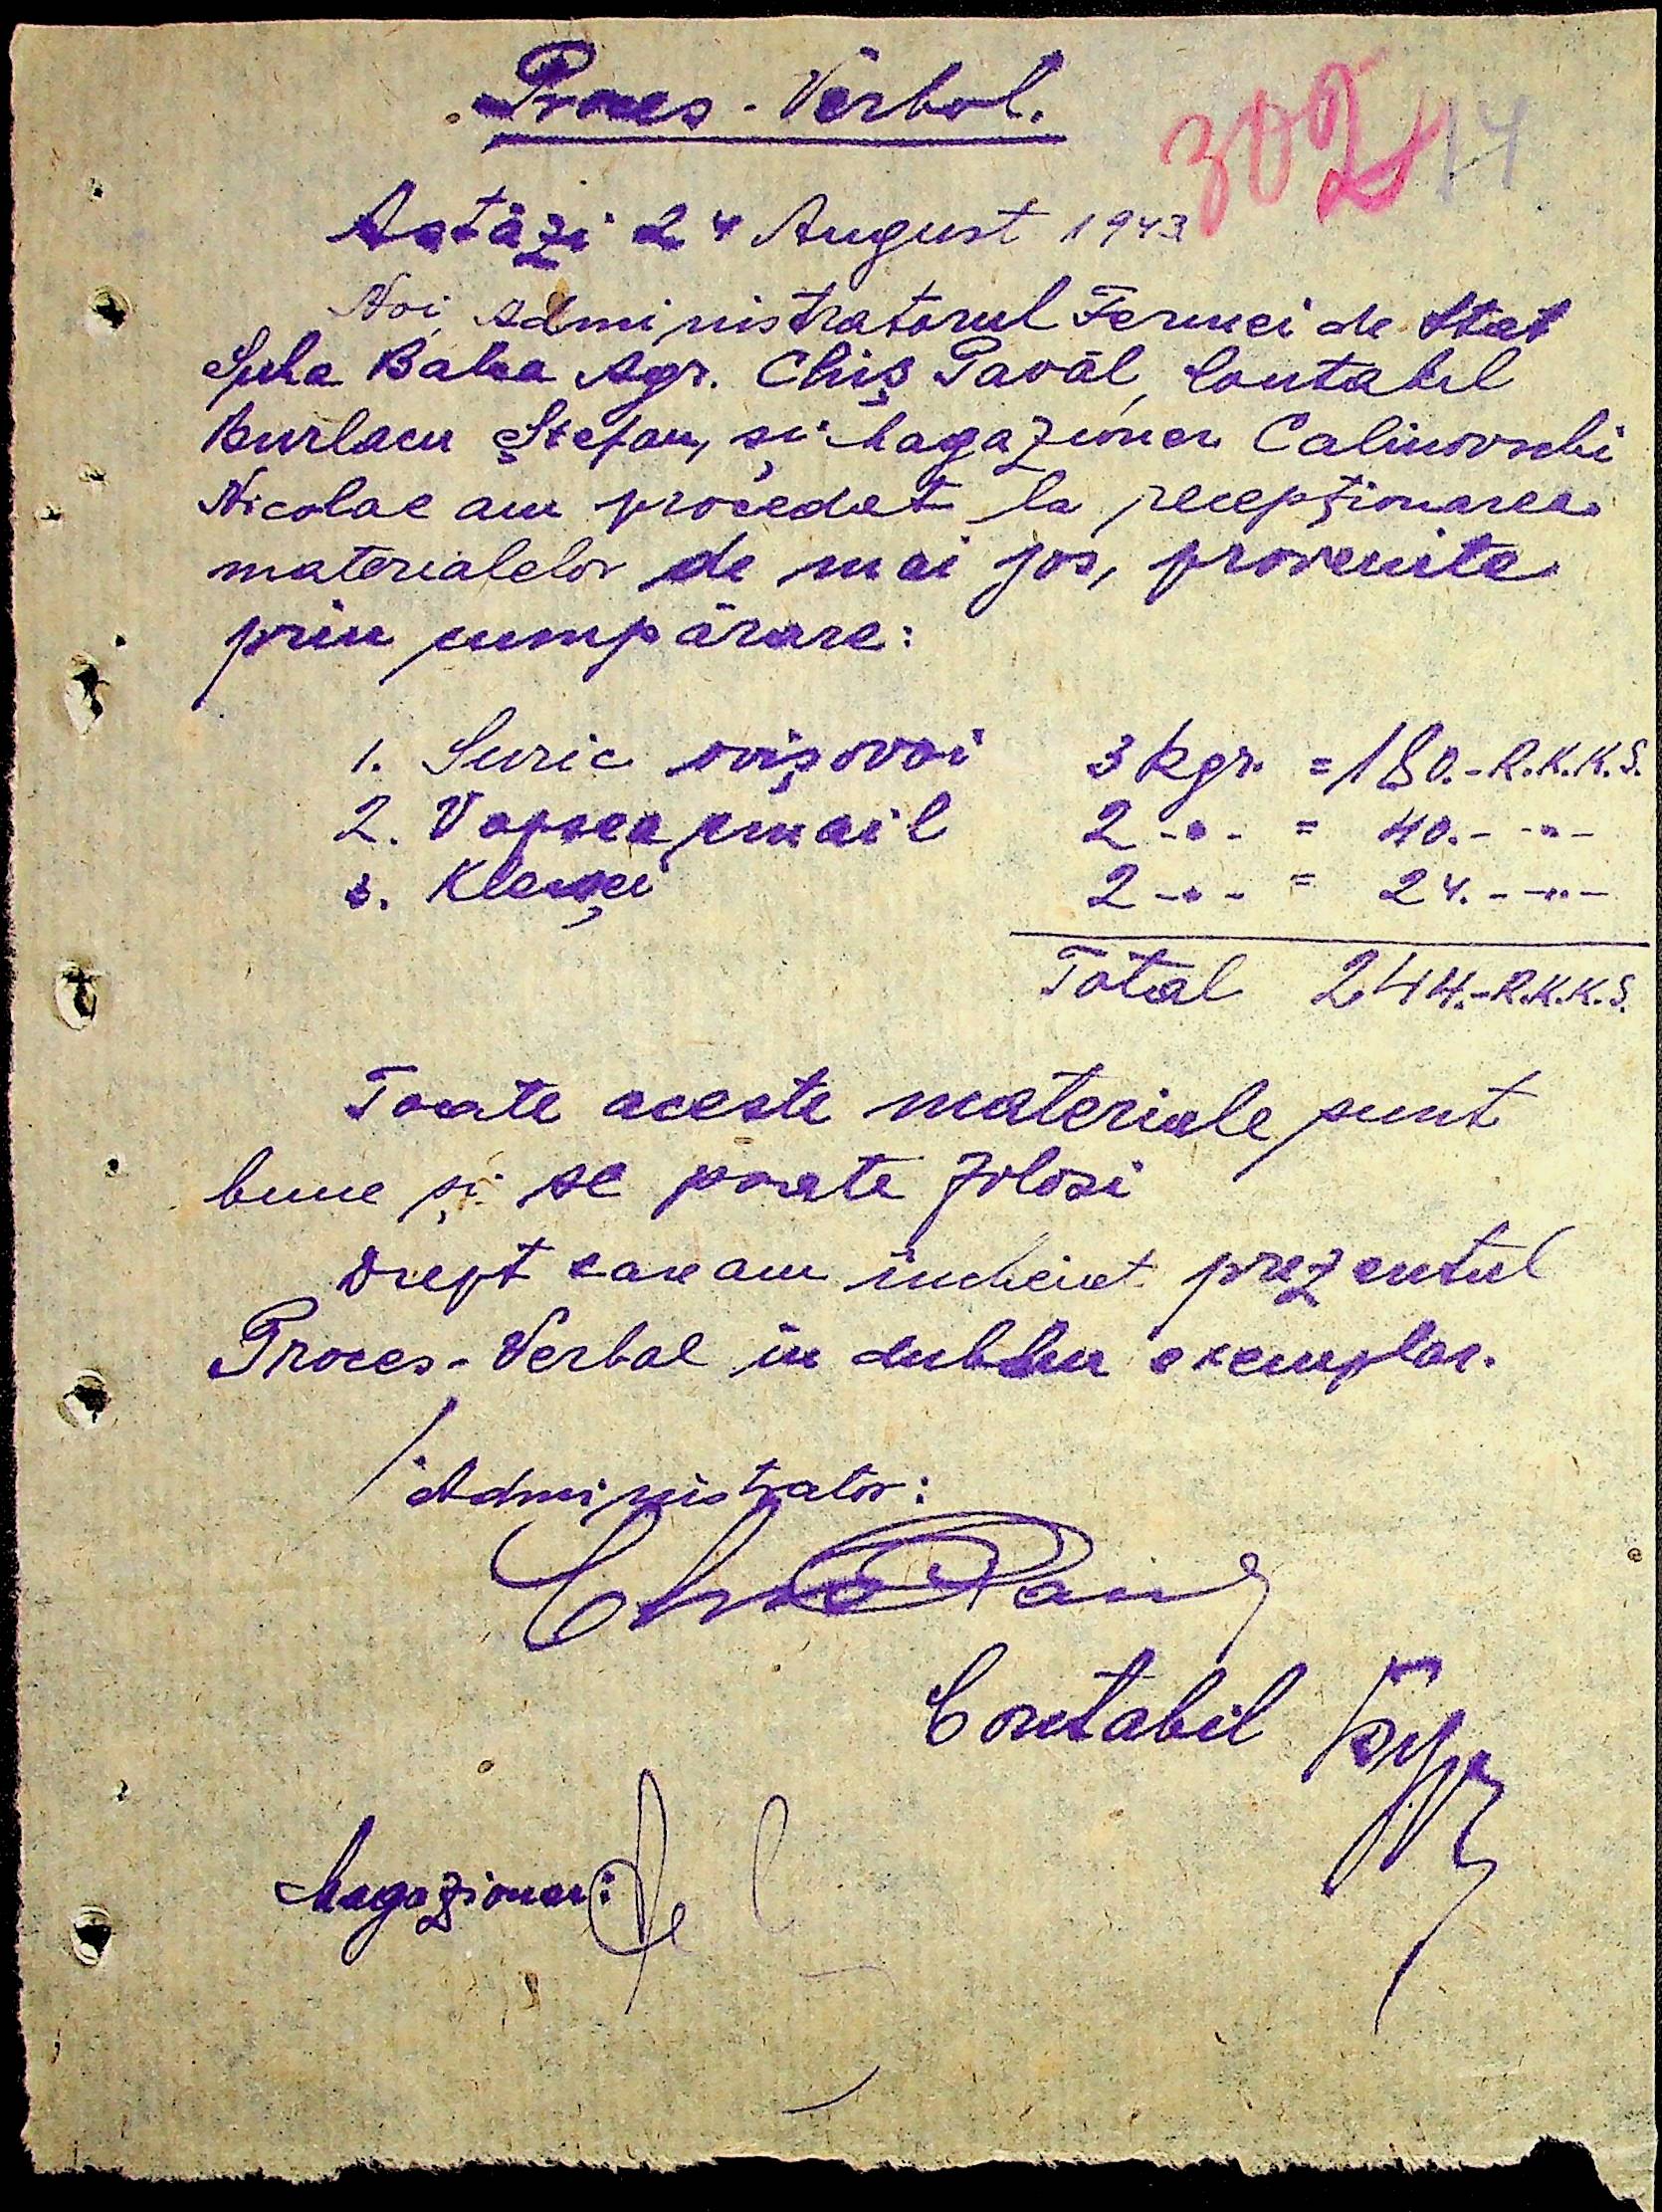 Proces-Verbal.
302 14
Astăzi 24 August 1943
Noi, Administratorul Fermei de Stat
Suha Balca Agr. Chiș Pavăl, Contabil
Burlacu Ștefan, și Magazioner Calinovschi
Nicolae am procedat la recepționarea
materialelor de mai jos, provenite
prin cumpărare:
1. Suric 3 kgr. = 180.- R.K.K.S.
2. Vopsea email 2 -"- = 40.- -"-
3. 2 -"- = 24. - -"-
Total 244.- R.K.K.S.
Toate aceste materiale sunt
bune și se poate folosi
Drept care am încheiat prezentul
Proces-Verbal în dublu exemplar.
Administrator:
Contabil
Magazioner: